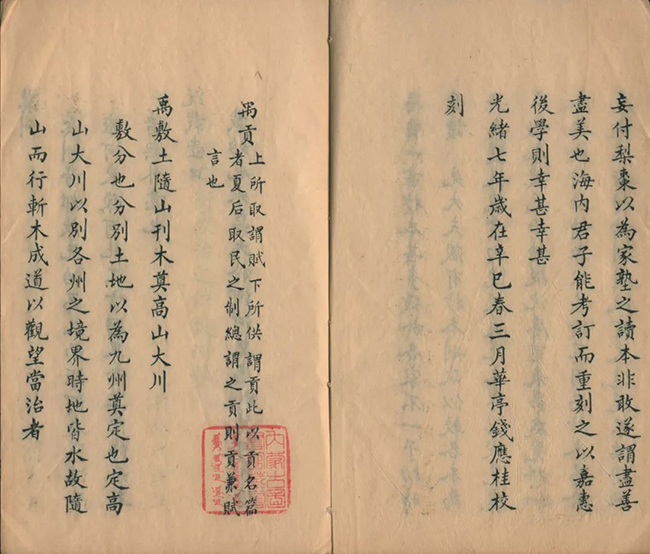 妄付梨棗以為家塾之讀本非敢遂謂盡善
盡美也海內君子能考訂而重刻之以嘉惠
後學則幸甚幸甚
光緒七年歲在辛巳春三月華亭錢應桂校
刻
禹貢上所取謂賦下所供謂貢此以貢名篇
者夏后取民之制總謂之貢則貢兼賦
言也
禹敷土隨山刊木奠高山大川
敷分也分別土地以為九州奠定也定高
山大川以別各州之境界時地皆水故隨
山而行斬木成道以觀望當治者
內蒙古圖